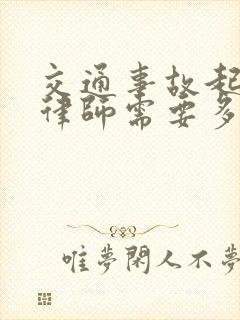 交通事故起
律师需要多
唯夢閑人不夢